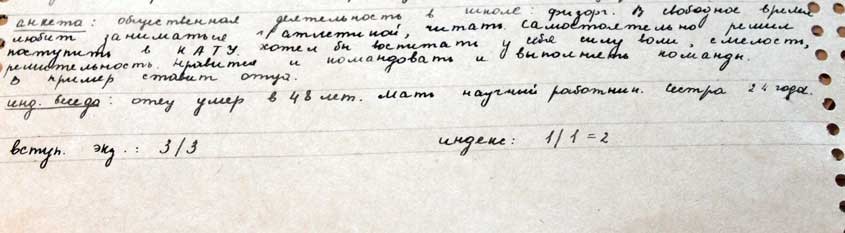 анкета: общественная деятельность в школе: физорг. В свободное время
любит заниматься атлетикой, читать. Самостоятельно решил
поступить в КАТУ. хотел бы воспитать у себя силу воли, смелость,
решительность. нравится и командовать и выполнять команды.
В пример ставит отца.
инд. беседа: отец умер в 48 лет. мать научный работник. сестра 24 года.
вступ. экз.: 3/3 индекс: 1/1=2